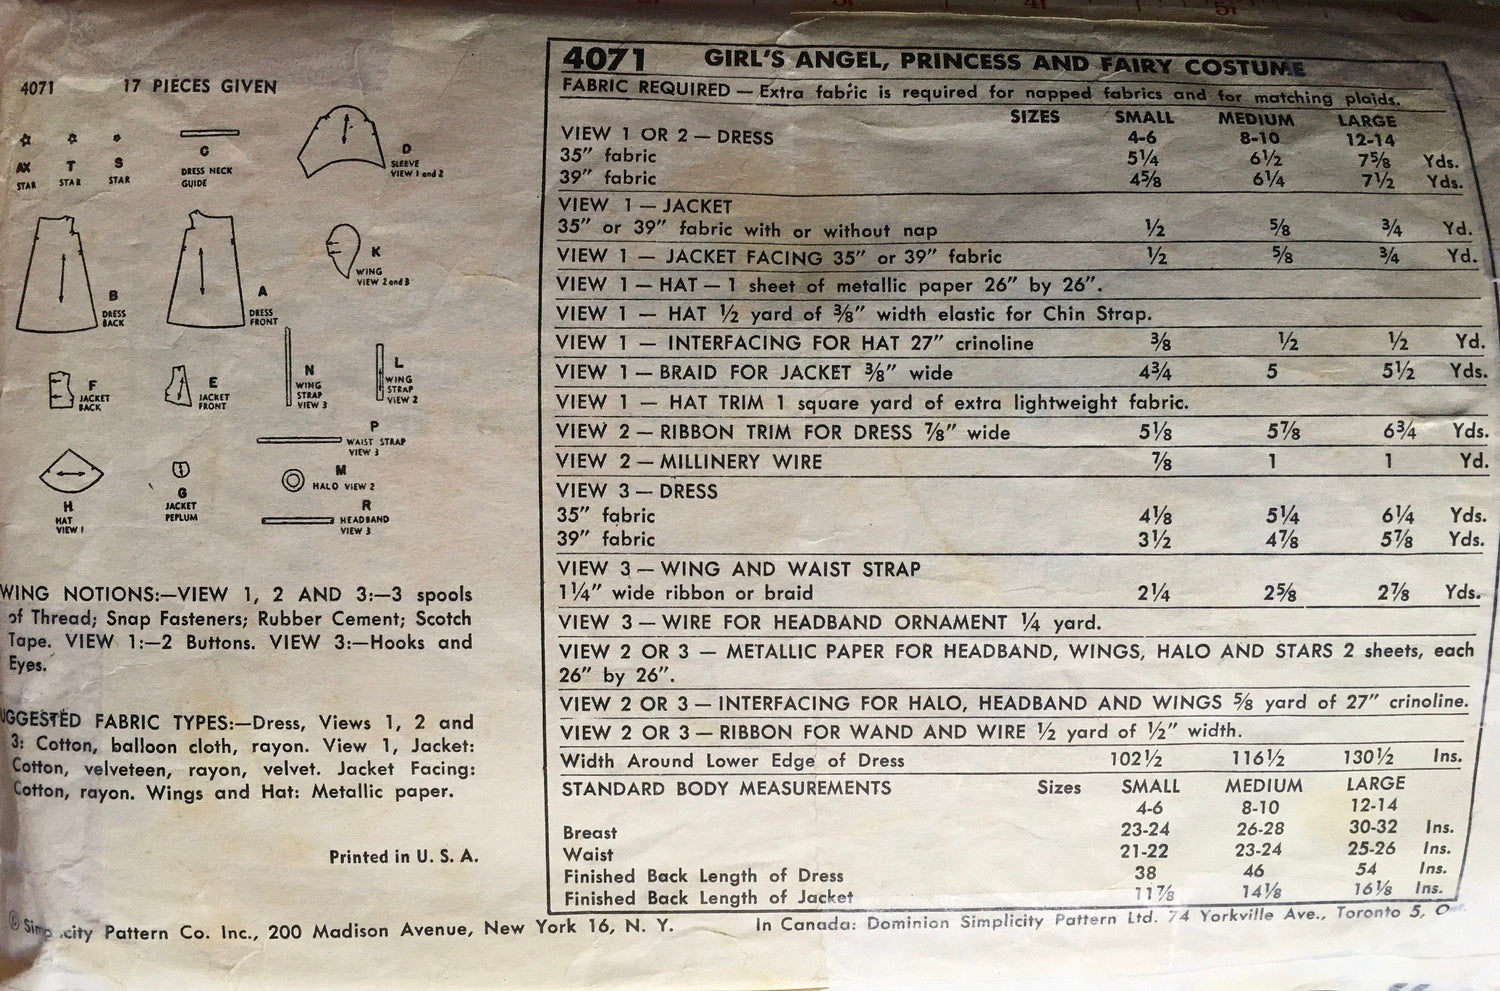 4071 17 PIECES GIVEN
AX
STAR
T
STAR
S
STAR
C
DRESS NECK
GUIDE
D
SLEEVE
VIEW 1 and 2
B
DRESS
BACK
A
DRESS
FRONT
K
WING
VIEW 2 and 3
F
JACKET
BACK
E
JACKET
FRONT
N
WING
STRAP
VIEW 3
L
WING
STRAP
VIEW 2
P
WAIST STRAP
VIEW 3
H
HAT
VIEW 1
G
JACKET
PEPLUM
M
HALO VIEW 2
R
HEADBAND
VIEW 3
WING NOTIONS:—VIEW 1, 2 AND 3:—3 spools
of Thread; Snap Fasteners; Rubber Cement; Scotch
Tape. VIEW 1:—2 Buttons. VIEW 3:—Hooks and
Eyes.
UGGESTED FABRIC TYPES:—Dress, Views 1, 2 and
3: Cotton, balloon cloth, rayon. View 1, Jacket:
Cotton, velveteen, rayon, velvet. Jacket Facing:
Cotton, rayon. Wings and Hat: Metallic paper.
Printed in U. S. A.
4071 GIRL'S ANGEL, PRINCESS AND FAIRY COSTUME
FABRIC REQUIRED — Extra fabric is required for napped fabrics and for matching plaids.
SIZES SMALL MEDIUM LARGE
VIEW 1 OR 2 — DRESS 4-6 8-10 12-14
35" fabric 5¼ 6½ 7⅝ Yds.
39" fabric 4⅝ 6¼ 7½ Yds.
VIEW 1 — JACKET
35" or 39" fabric with or without nap ½ ⅝ ¾ Yd.
VIEW 1 — JACKET FACING 35" or 39" fabric ½ ⅝ ¾ Yd.
VIEW 1 — HAT — 1 sheet of metallic paper 26" by 26".
VIEW 1 — HAT ½ yard of ⅜" width elastic for Chin Strap.
VIEW 1 — INTERFACING FOR HAT 27" crinoline ⅜ ½ ½ Yd.
VIEW 1 — BRAID FOR JACKET ⅜" wide 4¾ 5 5½ Yds.
VIEW 1 — HAT TRIM 1 square yard of extra lightweight fabric.
VIEW 2 — RIBBON TRIM FOR DRESS ⅞" wide 5⅛ 5⅞ 6¾ Yds.
VIEW 2 — MILLINERY WIRE ⅞ 1 1 Yd.
VIEW 3 — DRESS
35" fabric 4⅛ 5¼ 6¼ Yds.
39" fabric 3½ 4⅞ 5⅞ Yds.
VIEW 3 — WING AND WAIST STRAP
1¼" wide ribbon or braid 2¼ 2⅝ 2⅞ Yds.
VIEW 3 — WIRE FOR HEADBAND ORNAMENT ¼ yard.
VIEW 2 OR 3 — METALLIC PAPER FOR HEADBAND, WINGS, HALO AND STARS 2 sheets, each
26" by 26".
VIEW 2 OR 3 — INTERFACING FOR HALO, HEADBAND AND WINGS ⅝ yard of 27" crinoline.
VIEW 2 OR 3 — RIBBON FOR WAND AND WIRE ½ yard of ½" width.
Width Around Lower Edge of Dress 102½ 116½ 130½ Ins.
STANDARD BODY MEASUREMENTS Sizes SMALL MEDIUM LARGE
4-6 8-10 12-14
Breast 23-24 26-28 30-32 Ins.
Waist 21-22 23-24 25-26 Ins.
Finished Back Length of Dress 38 46 54 Ins.
Finished Back Length of Jacket 11⅞ 14⅛ 16⅛ Ins.
© Simplicity Pattern Co. Inc., 200 Madison Avenue, New York 16, N. Y. In Canada: Dominion Simplicity Pattern Ltd. 74 Yorkville Ave., Toronto 5,